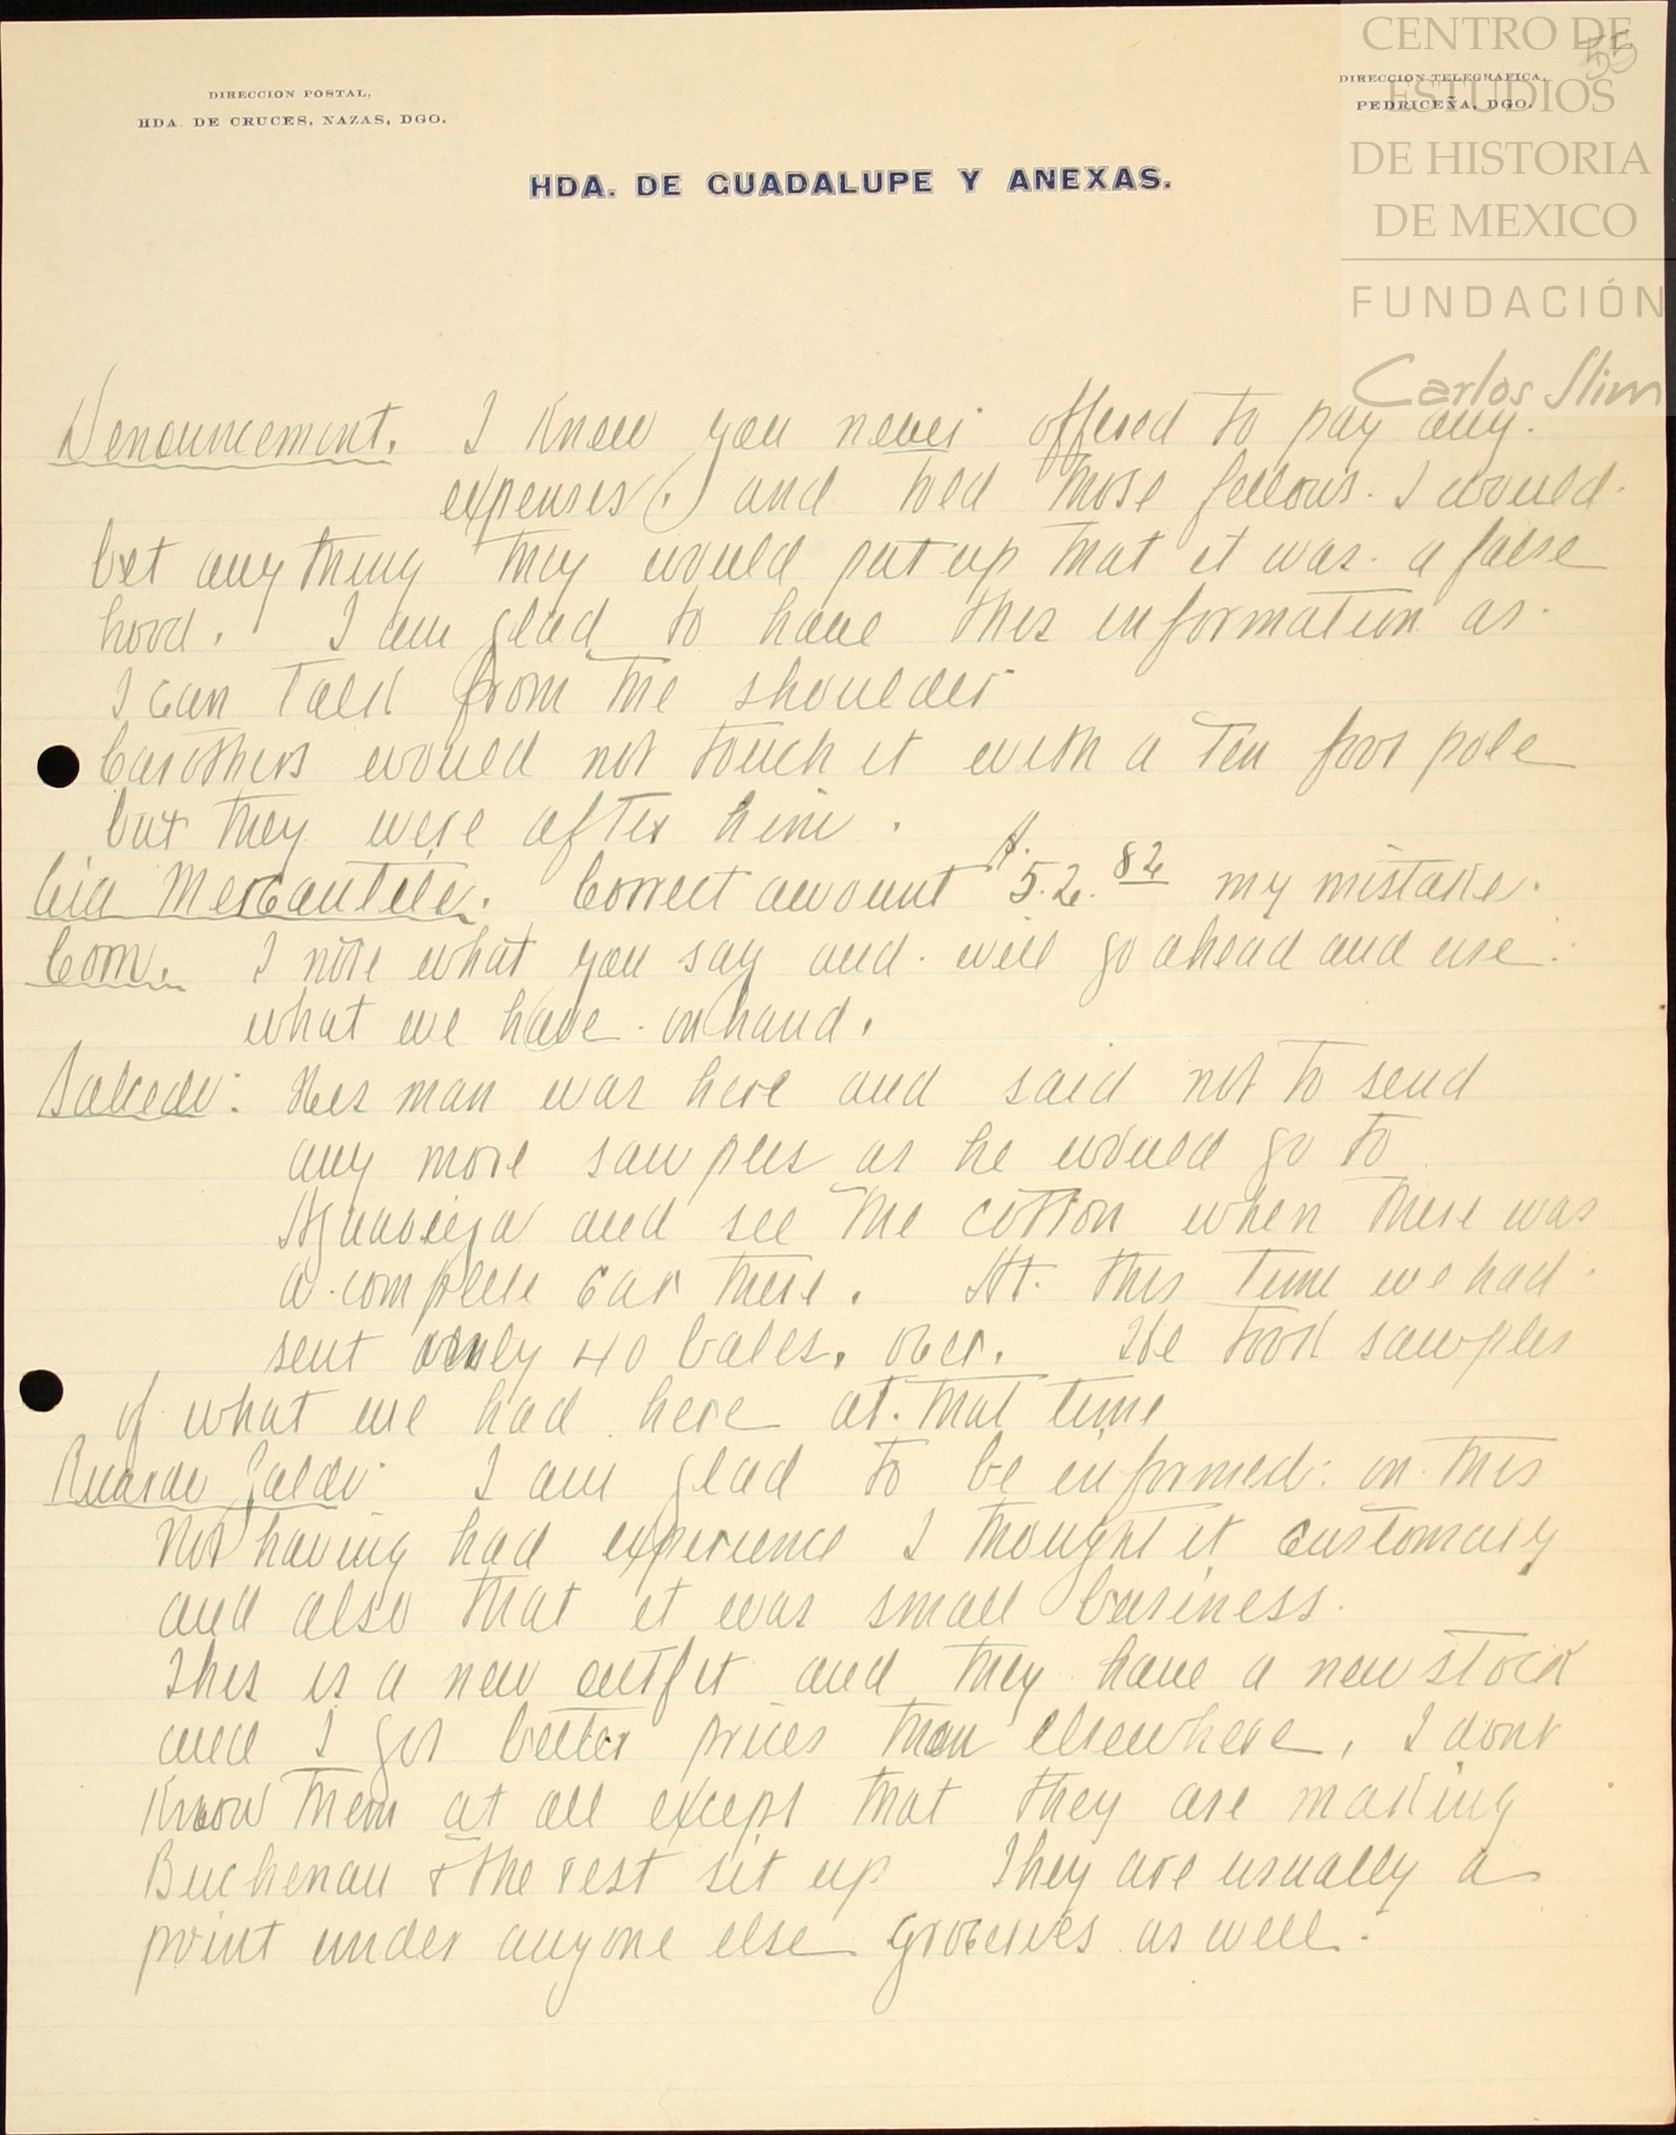 CENTRO DE
ESTUDIOS
DE HISTORIA
DE MEXICO
FUNDACIÓN
Carlos Slim
55
DIRECCION POSTAL,
HDA. DE CRUCES, NAZAS, DGO.
DIRECCION TELEGRAFICA,
PEDRICEÑA, DGO.
HDA. DE GUADALUPE Y ANEXAS.
Denouncement. I knew you never offered to pay any
expenses (.) and told those fellows I would
bet anything they would put up that it was a false
hood. I am glad to have this information as
I can talk from the shoulder
Carothers would not touch it with a ten foot pole
but they were after him.
Cia Mercantile. Correct amount $ 52.82 my mistake.
Corn. I note what you say and will go ahead and use
what we have on hand.
Salcedo: His man was here and said not to send
any more samples as he would go to
and see the cotton when there was
a complete car there. At this time we had
sent only 40 bales. over. He took samples
of what we had here at that time
Ricardo I am glad to be informed on this
Not having had experience I thought it customary
and also that it was small business.
This is a new outfit and they have a new stock
and I got better prices than elsewhere, I dont
know them at all except that they are making
Buchenau & the rest sit up They are usually a
point under anyone else groceries as well.